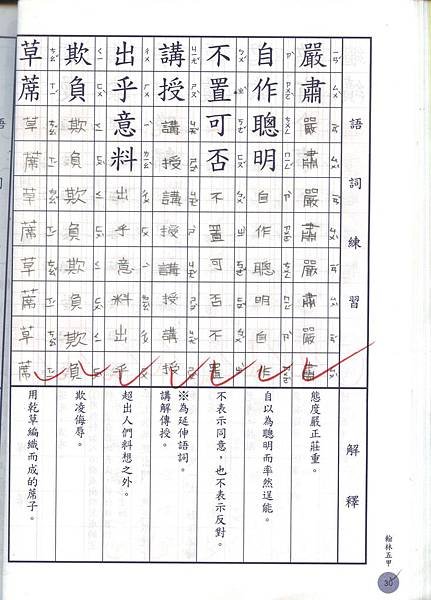 語詞練習
解釋
嚴肅嚴肅嚴肅嚴肅嚴肅
態度嚴正莊重。
自作聰明自作聰明自作
自以為聰明而率然逞能。
不置可否不置可否不置
不表示同意，也不表示反對。
講授講授講授講授講授
※為延伸語詞。
講解傳授。
出乎意料出乎意料出乎
超出人們料想之外。
欺負欺負欺負欺負欺負
欺凌侮辱。
草蓆草蓆草蓆草蓆草蓆
用乾草編織而成的蓆子。
翰林五甲
30